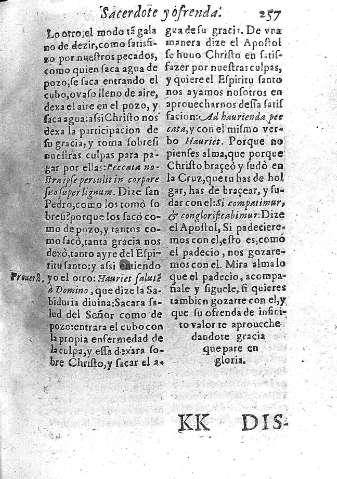 Sacerdote y ofrenda. 257
Lo otro, el modo tã gala
no de dezir, como satisfi
zo por nuestros pecados,
como quien saca agua de
pozo, se saca entrando el
cubo, o vaso lleno de aire,
dexa el aire en el pozo, y
saca agua: assi Christo nos
dexa la participacion de
su gracia, y toma sobre si
nuestras culpas para pa-
gar por ellas: Peccata no-
stra ipse pertulit in corpore
suo super lignum. Dize san
Pedro, como los tomò so
bre si? porque los sacò co-
mo de pozo, y tantos co-
mo sacò, tanta gracia nos
dexò, tanto ayre del Espi-
ritu santo; y assi entiendo
yo el otro: Hauriet salutẽ
Prouer. 8.
à Domino, que dize la Sa-
biduria diuina: Sacara sa-
lud del Señor como de
pozo: entrara el cubo con
la propia enfermedad de
la culpa, y essa dexara so-
bre Christo, y sacar el a-
gua de su gracia. De vna
manera dize el Apostol
se huuo Christo en satis-
fazer por nuestras culpas,
y quiere el Espiritu santo
nos ayamos nosotros en
aprouecharnos dessa satis
facion: Ad haurienda pec
cata, y con el mismo ver-
bo Hauriet. Porque no
pienses alma, que porque
Christo braceò y sudò en
la Cruz, que tu has de hol
gar, has de braçear, y su-
dar con el: Si compatimur,
& conglorificabimur: Dize
el Apostol, Si padeciere-
mos con el, esto es, como
el padecio, nos gozare-
mos con el. Mira alma lo
que el padecio, acompa-
ñale y siguele, si quieres
tambien gozarte con el, y
que su ofrenda de infini-
to valor te aproueche
dandote gracia
que pare en
gloria.
KK DIS-